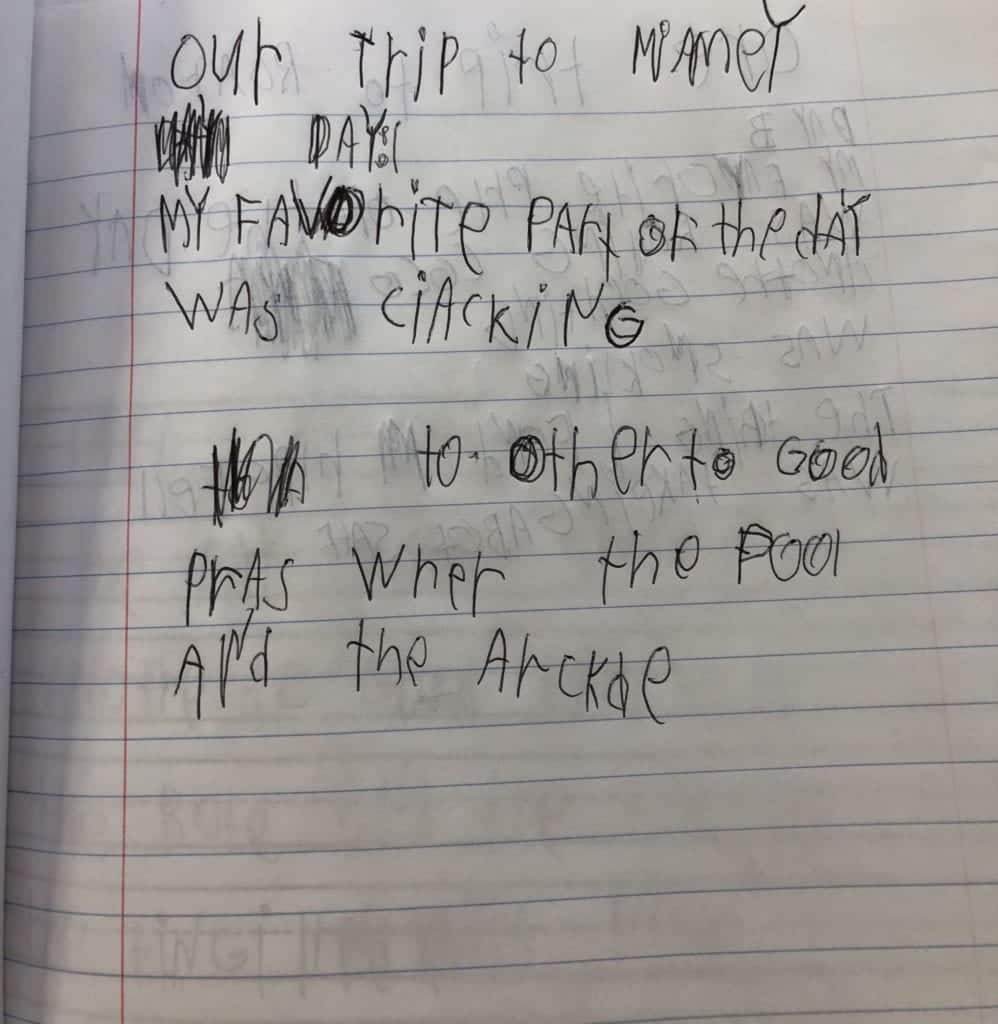 Our trip to Miamey
DAY:1
MY FAVOrITe PArt OF the dAY
WAS CiACKiNG
to other to Good
PrAS Wher the POOl
ANd the Arckde